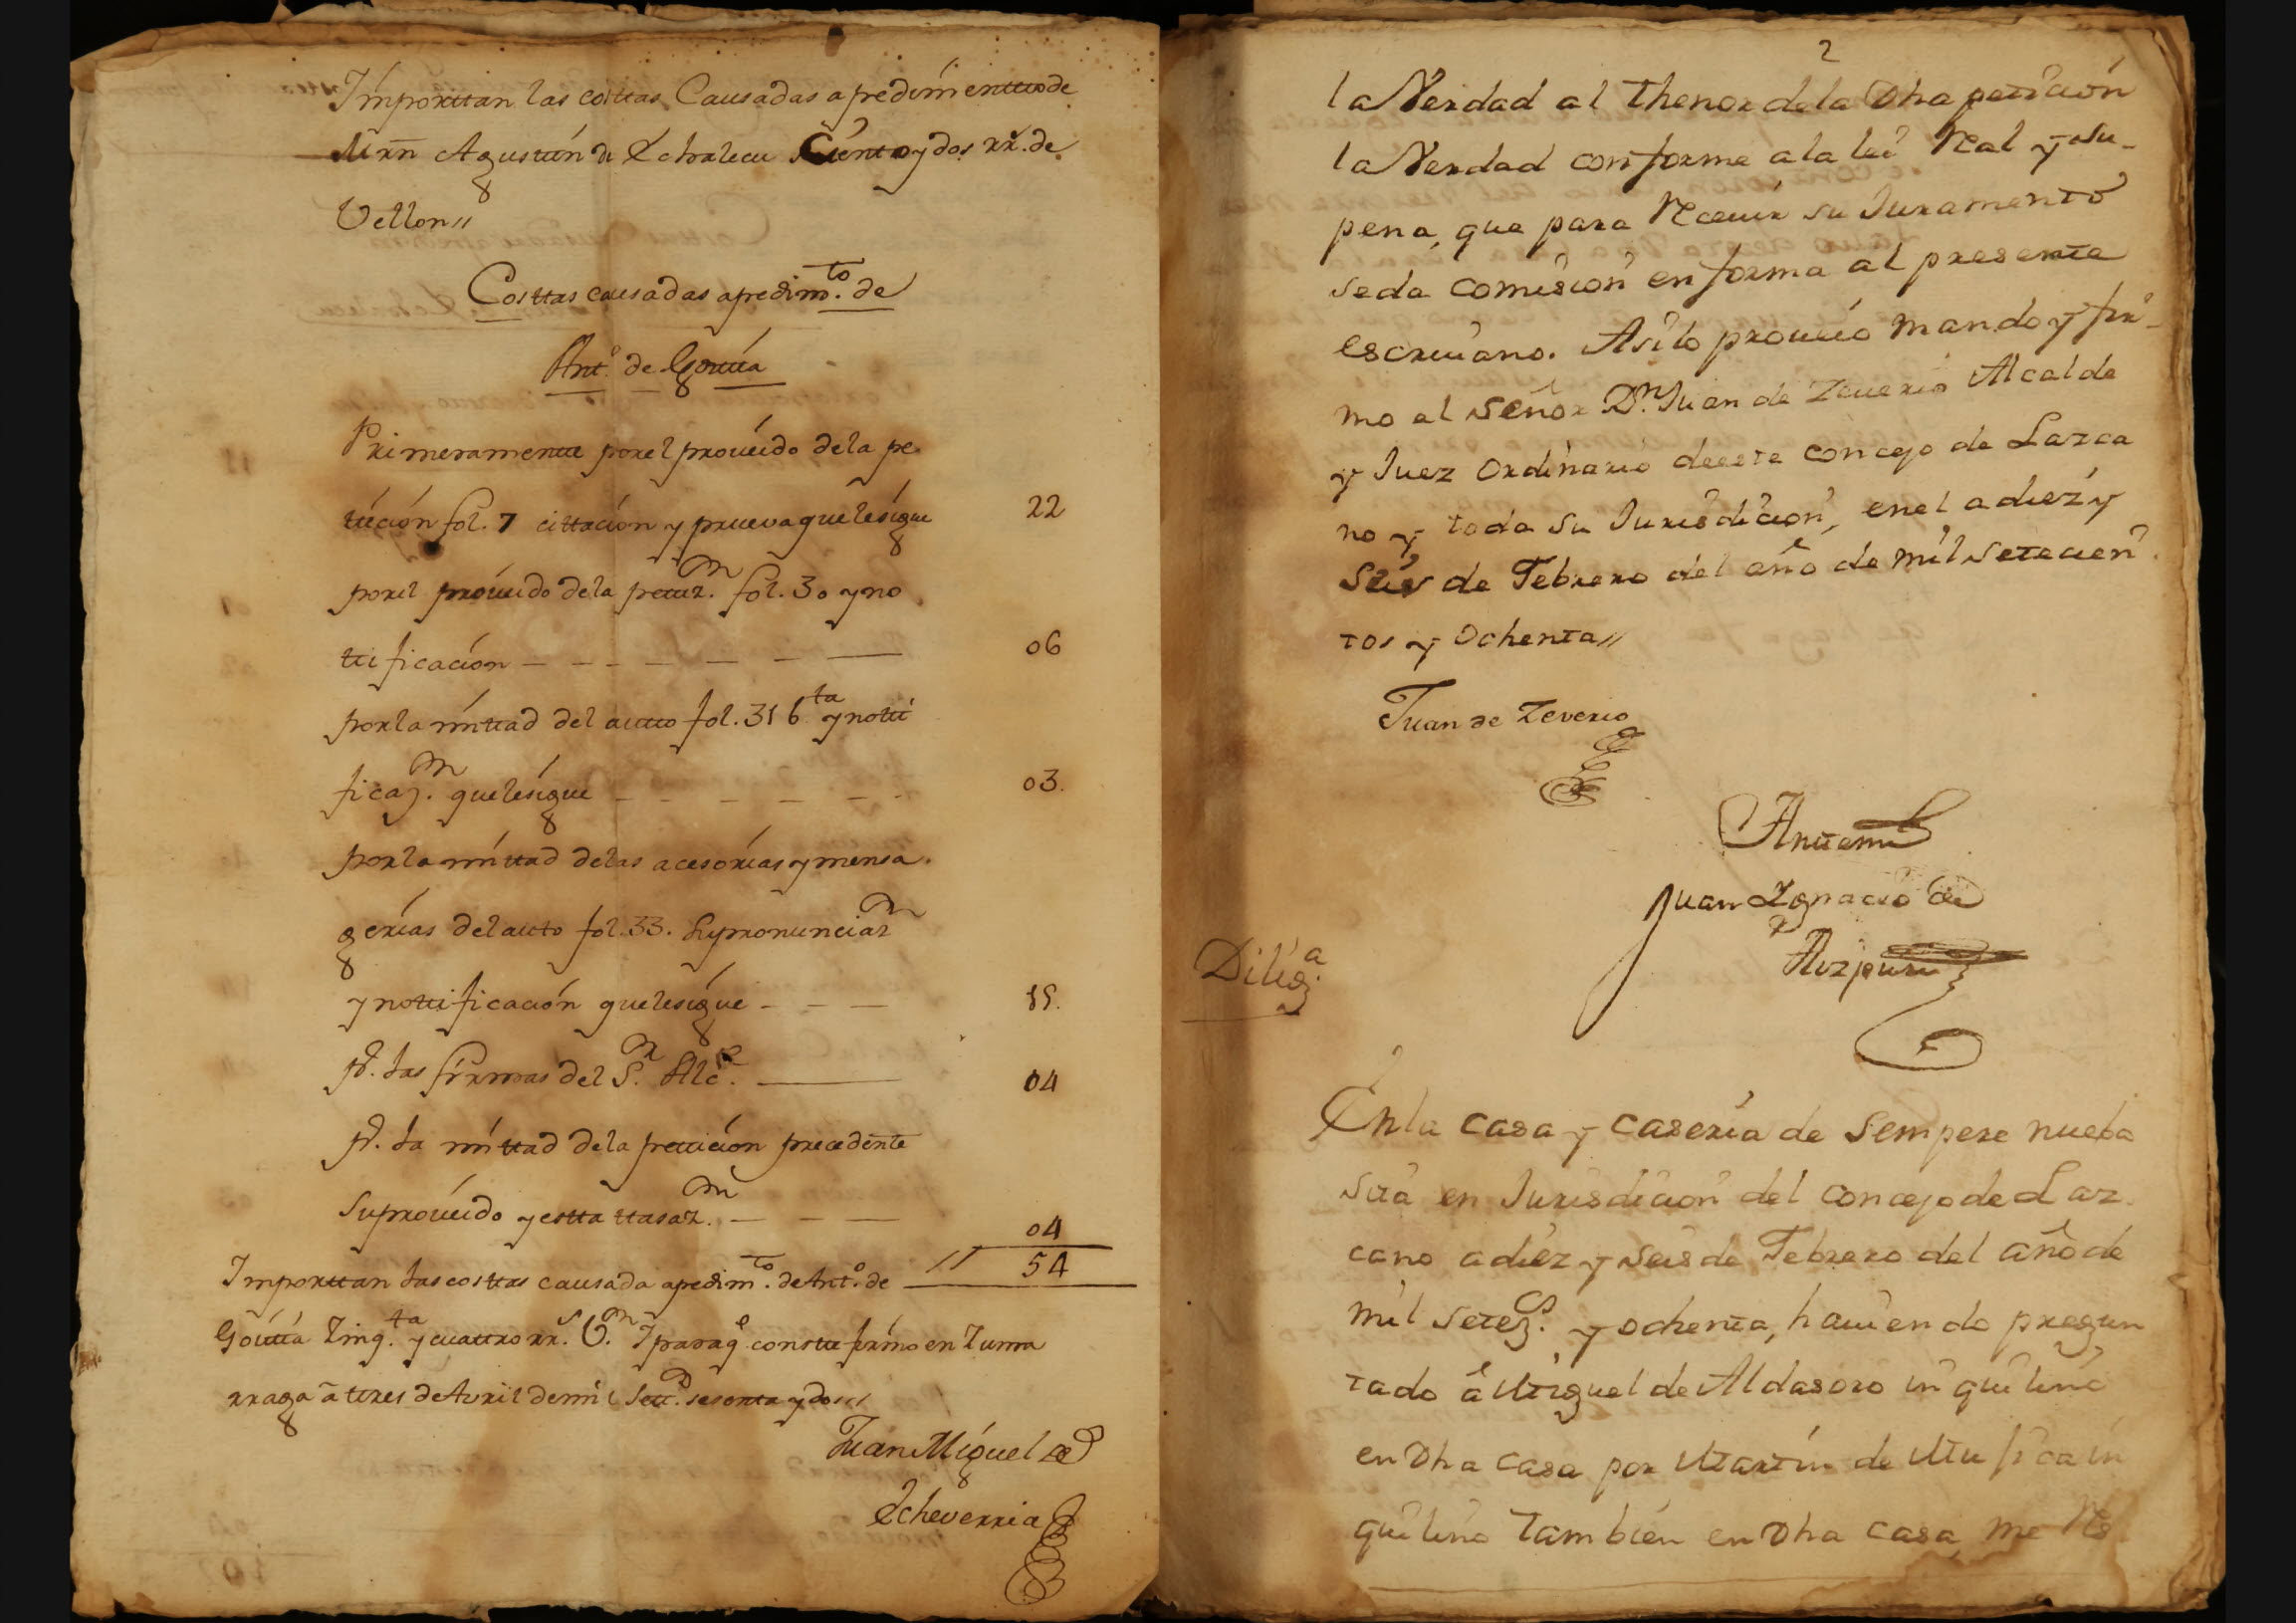 Importtan las costtas Causadas a pedimientto de
Mrn Agusttin de Echalecu Ciento y dos rr.de
Vellon//
Costtas causadas a pedim.to de
Antº. de Goittia
Primeramentte por el proueido de la pe
ttición fol. 7 cittación y prueva que le sigue 22
por el proueido de la pettiz.n fol. 30 y no
ttificación — — — — — — 06
por la mittad del autto fol. 31 b.ta y notti
ficaz.n que le sigue — — — — — — 03.
por la mittad de las acesorias y mensa
gerias del auto fol. 33. Supronunciaz.n
y nottificación que le sigue — — — 15.
Pr. las firmas del S.r Alc.e — 04
Pr. la mittad de la pettición precedente
su proueido y estta ttasaz.n — — — 04
Importtan las costtas causada a pedim.to de Antº. de // 54
Goittia Zinq.ta y cuattro rr.s V.n Y para q.e constte firmo en Zuma
rraga â ttres de Avril de mil Sett.s sesenta y dos//
Juan Miguel de
Echeverria
2
la Verdad al thenor de la Dha peticion
la Verdad conforme a la lei Real y su
pena, que para Receuir su Juramento
se da comision en forma al presente
escriuano. Asi lo proueio mando y fir
mo el señor D.n Juan de Zeuerio Alcalde
y Juez Ordinario de este concejo de Lazca
no y toda su Jurisdicion, en el a diez y
seis de Febrero del año de mil setecien
tos y ochenta//
Juan de Zeverio
Antemi
Juan Ignacio de
Aizpuru
Dilig.a
En la casa y caseria de Sempere nueba
sita en Jurisdicion del concejo de Laz
cano a diez y seis de Febrero del año de
mil setez.s y ochenta, hauiendo pregun
tado â Miguel de Aldasoro inquilino
en Dha casa por Martin de Mujica in
quilino tambien en Dha casa, me Res